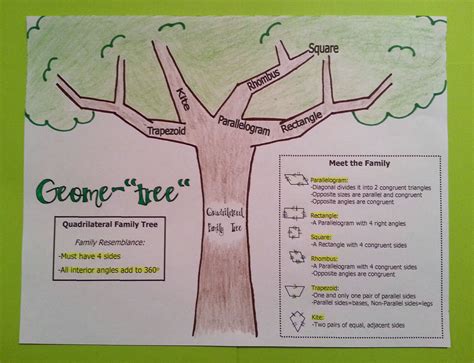 Square
Rhombus
Kite
Trapezoid
Parallelogram
Rectangle
Geome-"tree"
Quadrilateral
Family Tree
Quadrilateral Family Tree
Family Resemblance:
-Must have 4 sides
-All interior angles add to 360°
Meet the Family
Parallelogram:
-Diagonal divides it into 2 congruent triangles
-Opposite sides are parallel and congruent
-Opposite angles are congruent
Rectangle:
-A Parallelogram with 4 right angles
Square:
-A Rectangle with 4 congruent sides
Rhombus:
-A Parallelogram with 4 congruent sides
-Opposite angles are congruent
Trapezoid:
-One and only one pair of parallel sides
-Parallel sides=bases, Non-Parallel sides=legs
Kite:
-Two pairs of equal, adjacent sides